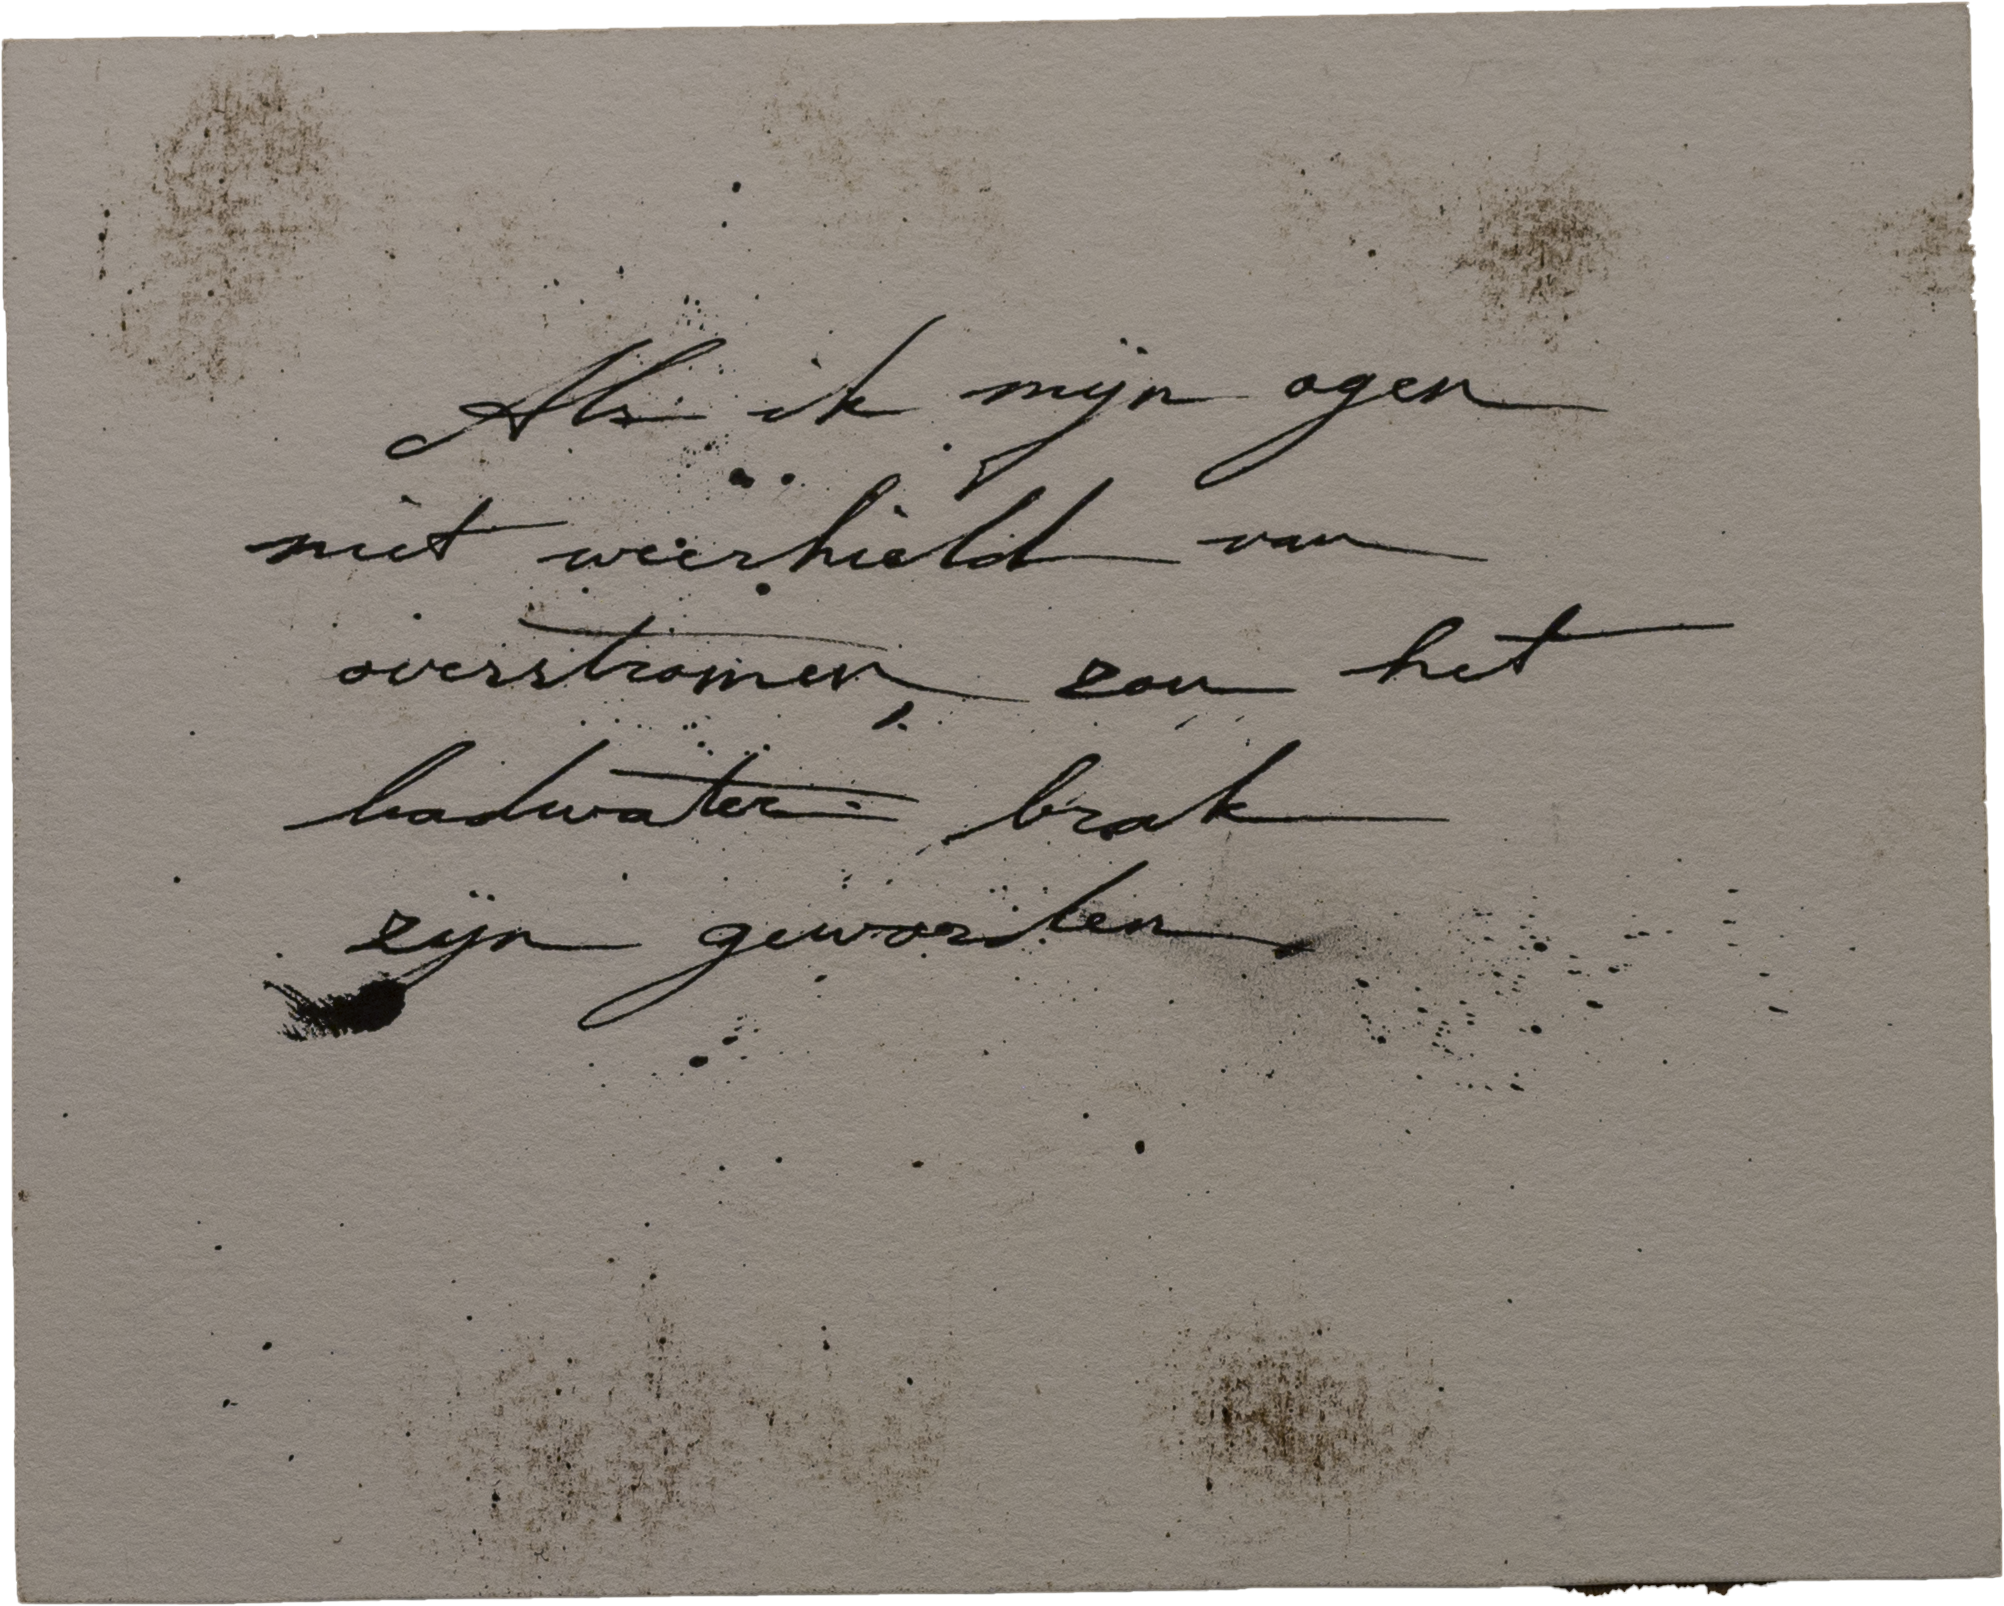 Als ik mijn ogen
niet weerhield van
overstromen, zou het
badwater brak
zijn geworden